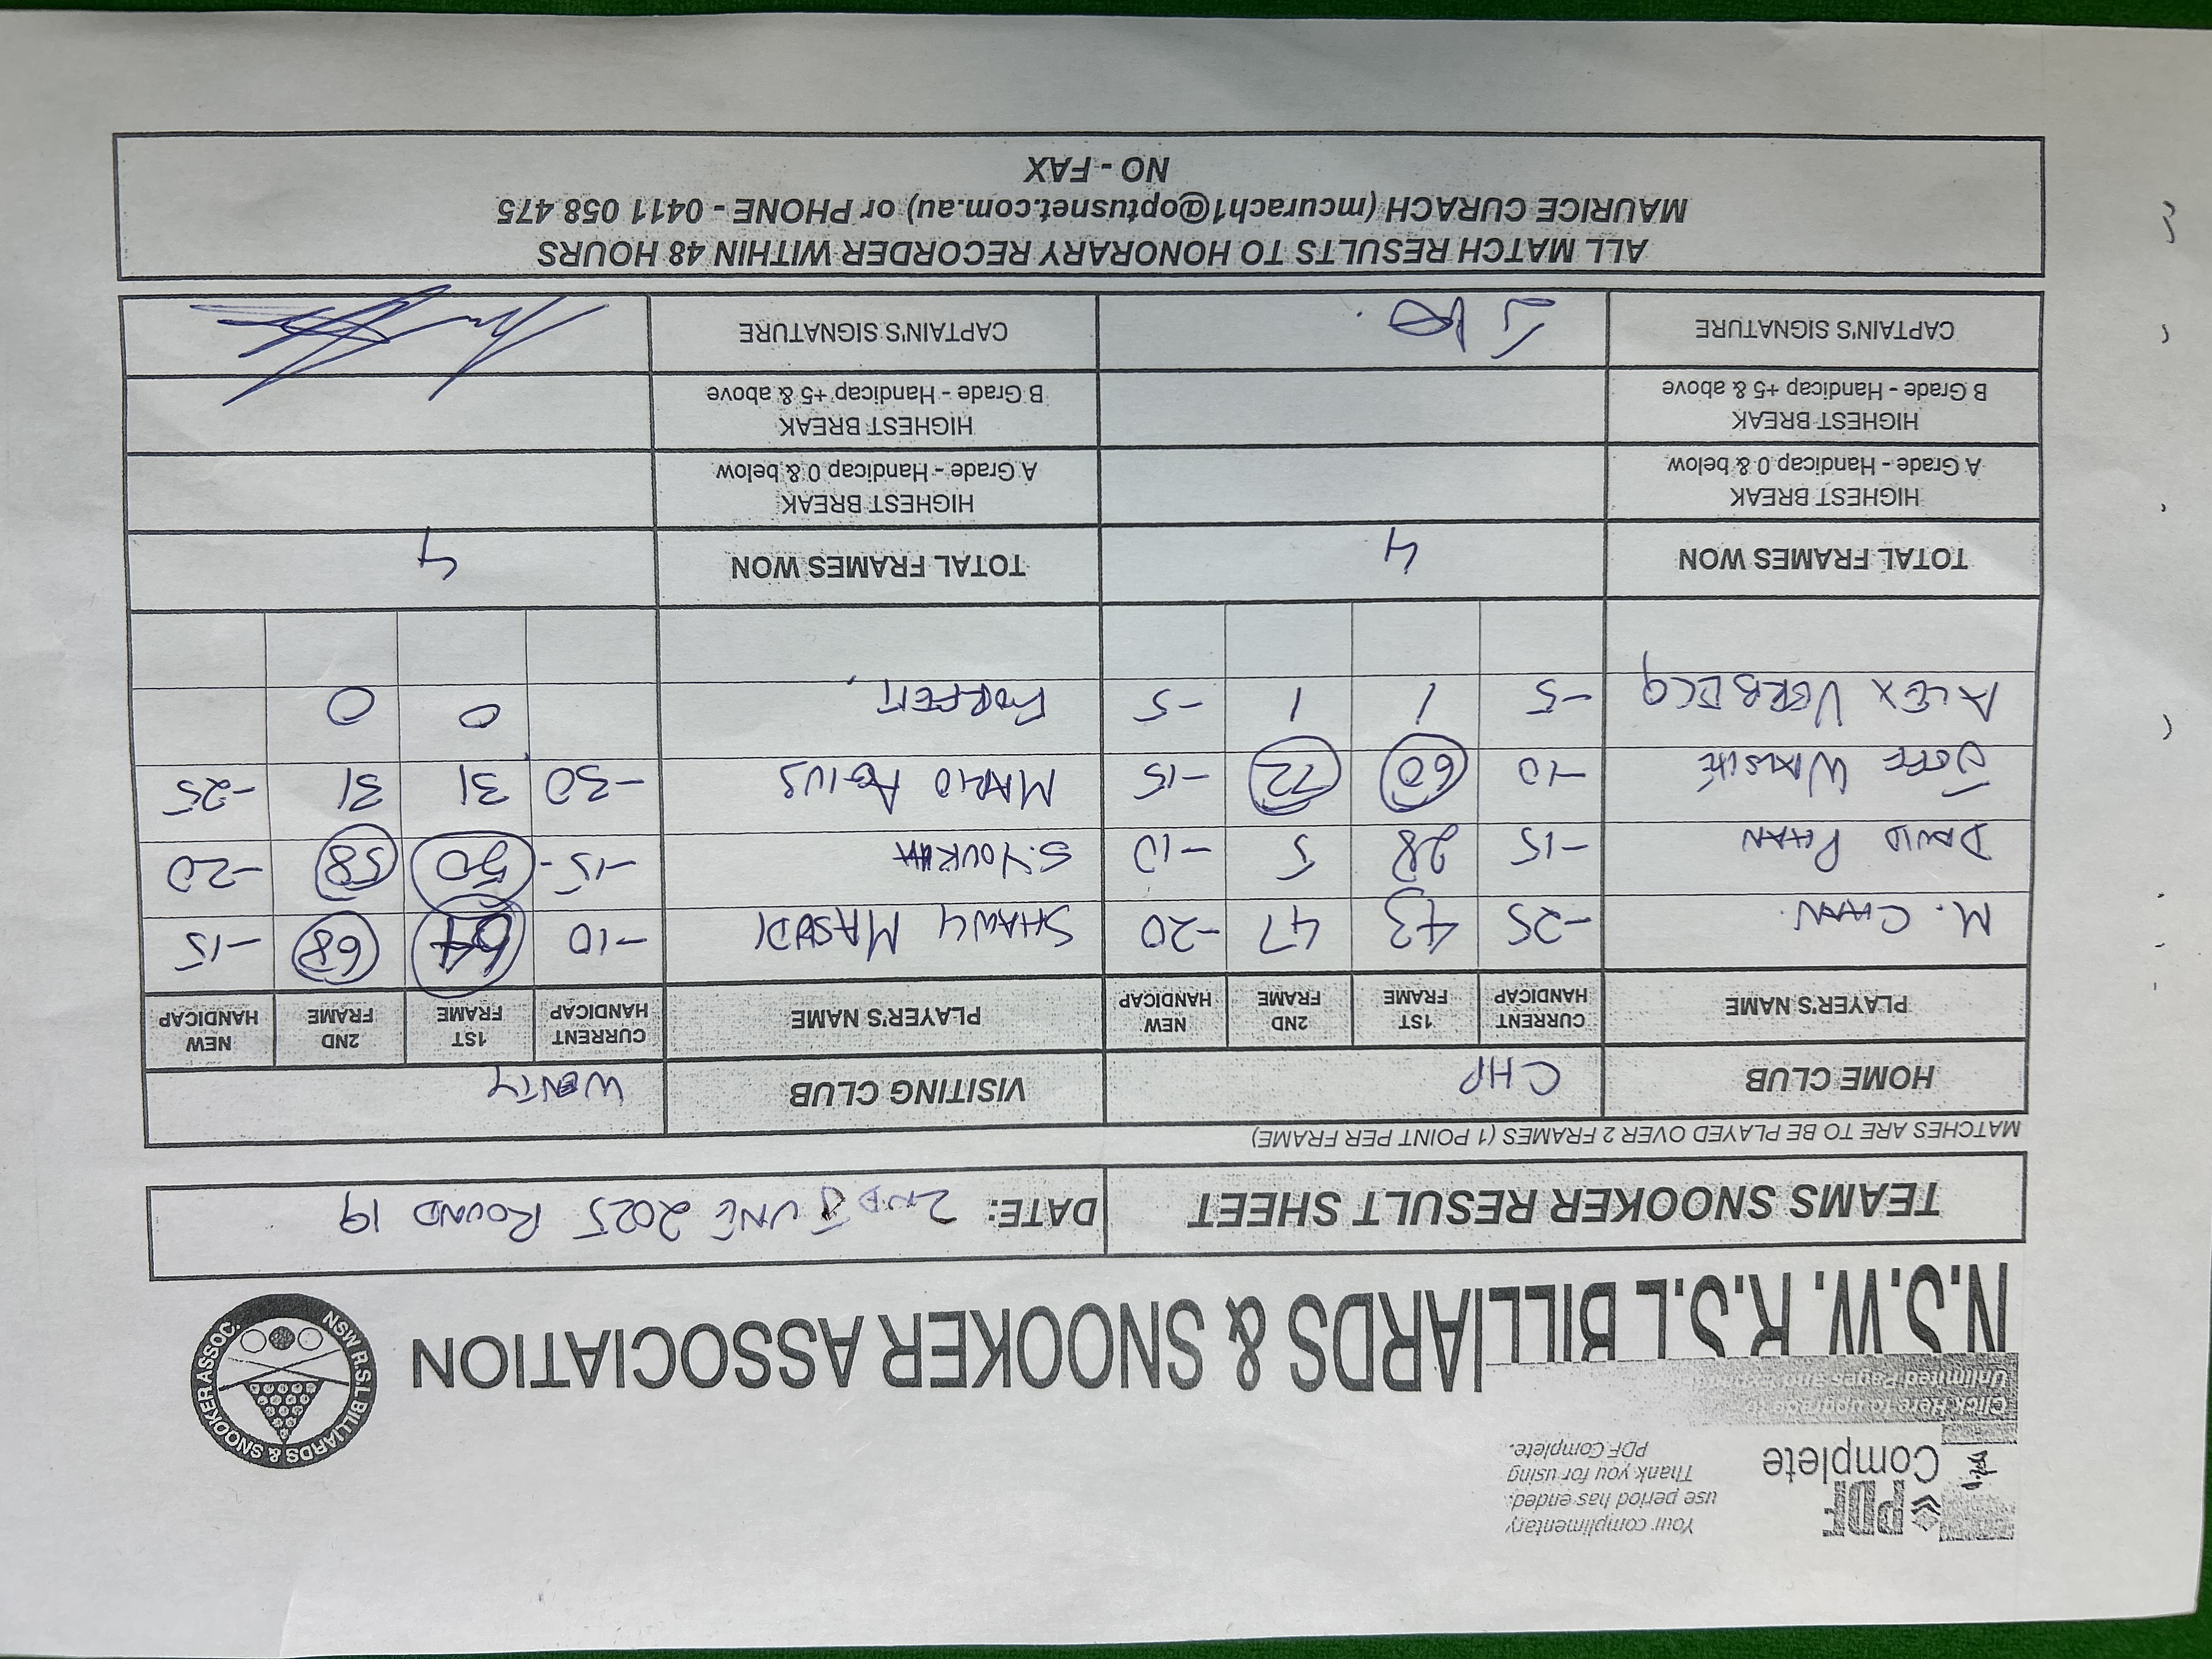 PDF Complete
Your complimentary
use period has ended.
Thank you for using
PDF Complete.
Click Here to upgrade to
Unlimited Pages and
N.S.W. R.S.L BILLIARDS & SNOOKER ASSOCIATION
NSW R.S.L BILLIARDS & SNOOKER ASSOC.
TEAMS SNOOKER RESULT SHEET DATE: 2ND JUNE 2025 ROUND 19
MATCHES ARE TO BE PLAYED OVER 2 FRAMES (1 POINT PER FRAME)
HOME CLUB CHP VISITING CLUB WENTY
PLAYER'S NAME CURRENT HANDICAP 1ST FRAME 2ND FRAME NEW HANDICAP PLAYER'S NAME CURRENT HANDICAP 1ST FRAME 2ND FRAME NEW HANDICAP
M. CHAN. -25 43 47 -20 SHAWN MASUDI -10 68 -15
DAVID PHAN -15 28 5 -10 S. -15 50 58 -20
JEFF -10 60 72 -15 MARIO AGIUS -30 31 31 -25
ALEX VERBECQ -5 1 1 -5 FORFEIT 0 0
TOTAL FRAMES WON 4 TOTAL FRAMES WON 4
HIGHEST BREAK HIGHEST BREAK
A Grade - Handicap 0 & below A Grade - Handicap 0 & below
HIGHEST BREAK HIGHEST BREAK
B Grade - Handicap +5 & above B Grade - Handicap +5 & above
CAPTAIN'S SIGNATURE CAPTAIN'S SIGNATURE
ALL MATCH RESULTS TO HONORARY RECORDER WITHIN 48 HOURS
MAURICE CURACH (mcurach1@optusnet.com.au) or PHONE - 0411 058 475
NO - FAX